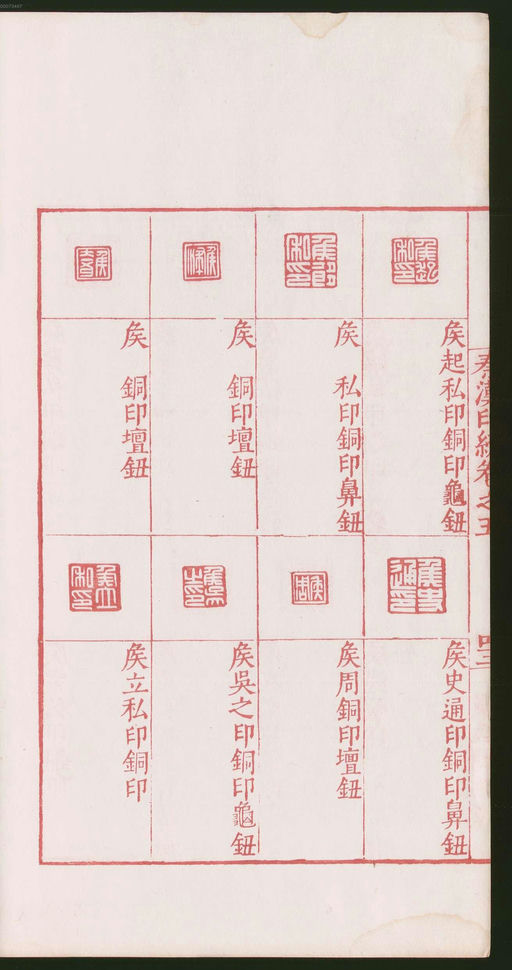 00073487
秦漢印統卷之五
矦起私印銅印龜鈕
矦 私印銅印鼻鈕
矦 銅印壇鈕
矦 銅印壇鈕
矦史通印銅印鼻鈕
矦周銅印壇鈕
矦吳之印銅印龜鈕
矦立私印銅印